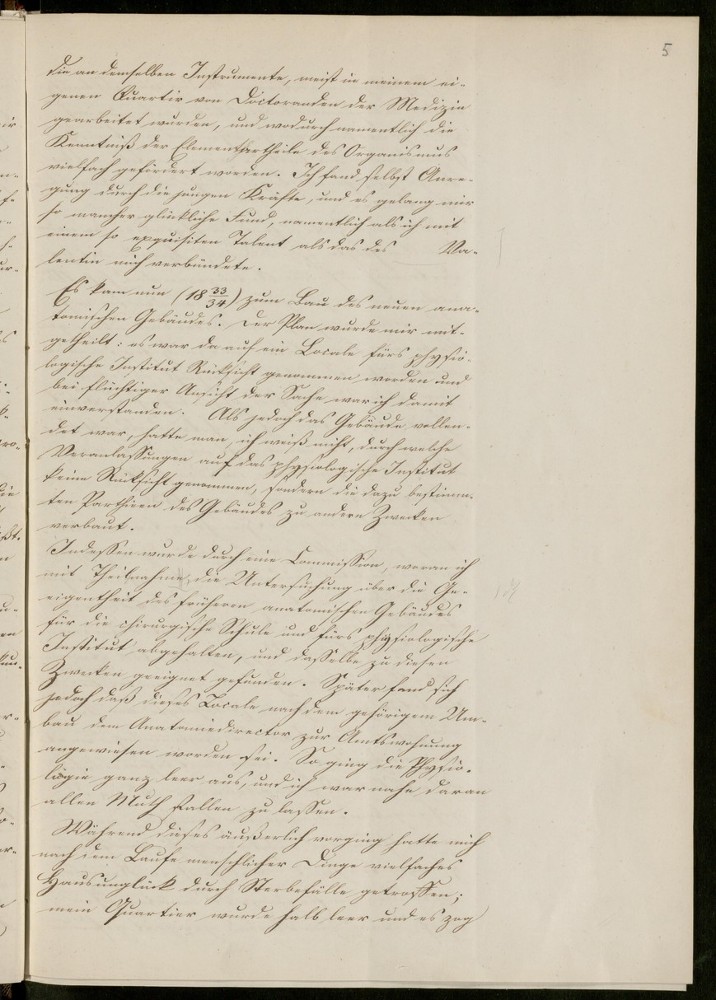 5
die an demselben Instrumente, meist in meinem ei-
genen Quartir von Doctoranden der Medizin
gearbeitet wurden, und wodurch namentlich die
Kenntniß der Elementartheile des Organismus
vielfach gefördert worden. Ich fand selbst Anre-
gung durch die jungen Kräfte, und es gelang mir
so mancher glückliche Fund, namentlich als ich mit
einem so exquisiten Talent als das des Va-
lentin mich verbündete.
Es kam nun (18 33/34) zum Bau des neuen ana-
tomischen Gebäudes. Der Plan wurde mir mit-
getheilt: es war da auf ein Locale fürs physio-
logische Institut Rücksicht genommen worden und
bei flüchtiger Ansicht der Sache war ich damit
einverstanden. Als jedoch das Gebäude vollen-
det war, hatte man, ich weiß nicht, durch welche
Veranlassungen auf das physiologische Institut
keine Rücksicht genommen, sondern die dazu bestimm-
ten Parthieen des Gebäudes zu andern Zwecken
verbaut.
Indessen wurde durch eine Commission, woran ich
mit Theilnahm, die Untersuchung über die Ge-
eigentheit des früheren anatomischen Gebäudes
für die chirurgische Schule und fürs physiologische
Institut abgehalten, und dasselbe zu diesen
Zwecken geeignet gefunden. Später fand sich
jedoch daß dieses Locale nach dem gehörigem Um-
bau dem Anatomiedirector zur Amtswohnung
angewiesen worden sei. So ging die Physio-
logie ganz leer aus, und ich war nahe daran
allen Muth fallen zu lassen.
Während dieses äußerlich vorging hatte mich
nach dem Laufe menschlicher Dinge vielfaches
Hausunglück durch Sterbefälle getroffen;
mein Quartier wurde halb leer und es zog